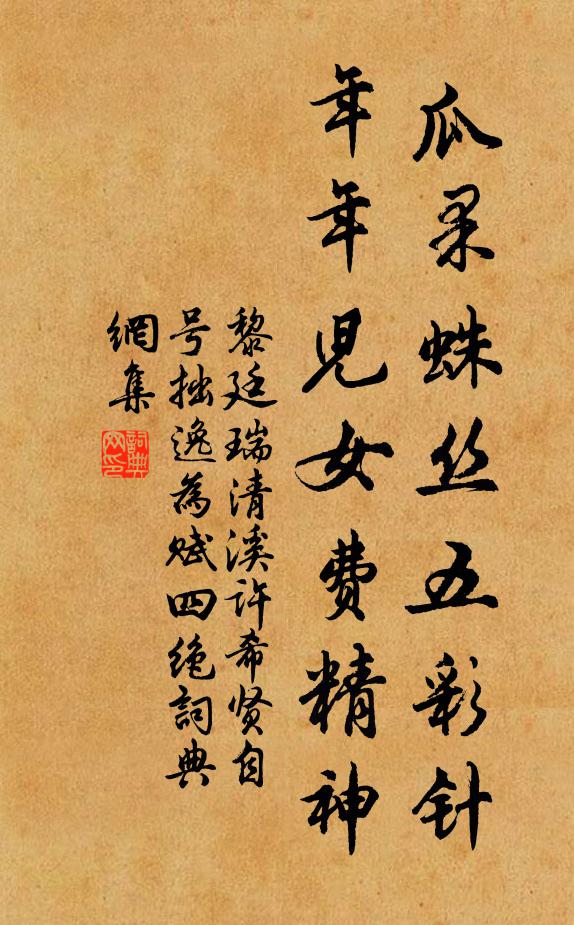 瓜果蛛丝五彩针
年年児女费精神
黎廷瑞清溪许希贤自
号拙逸为赋四绝詞典
網集
詞典网印